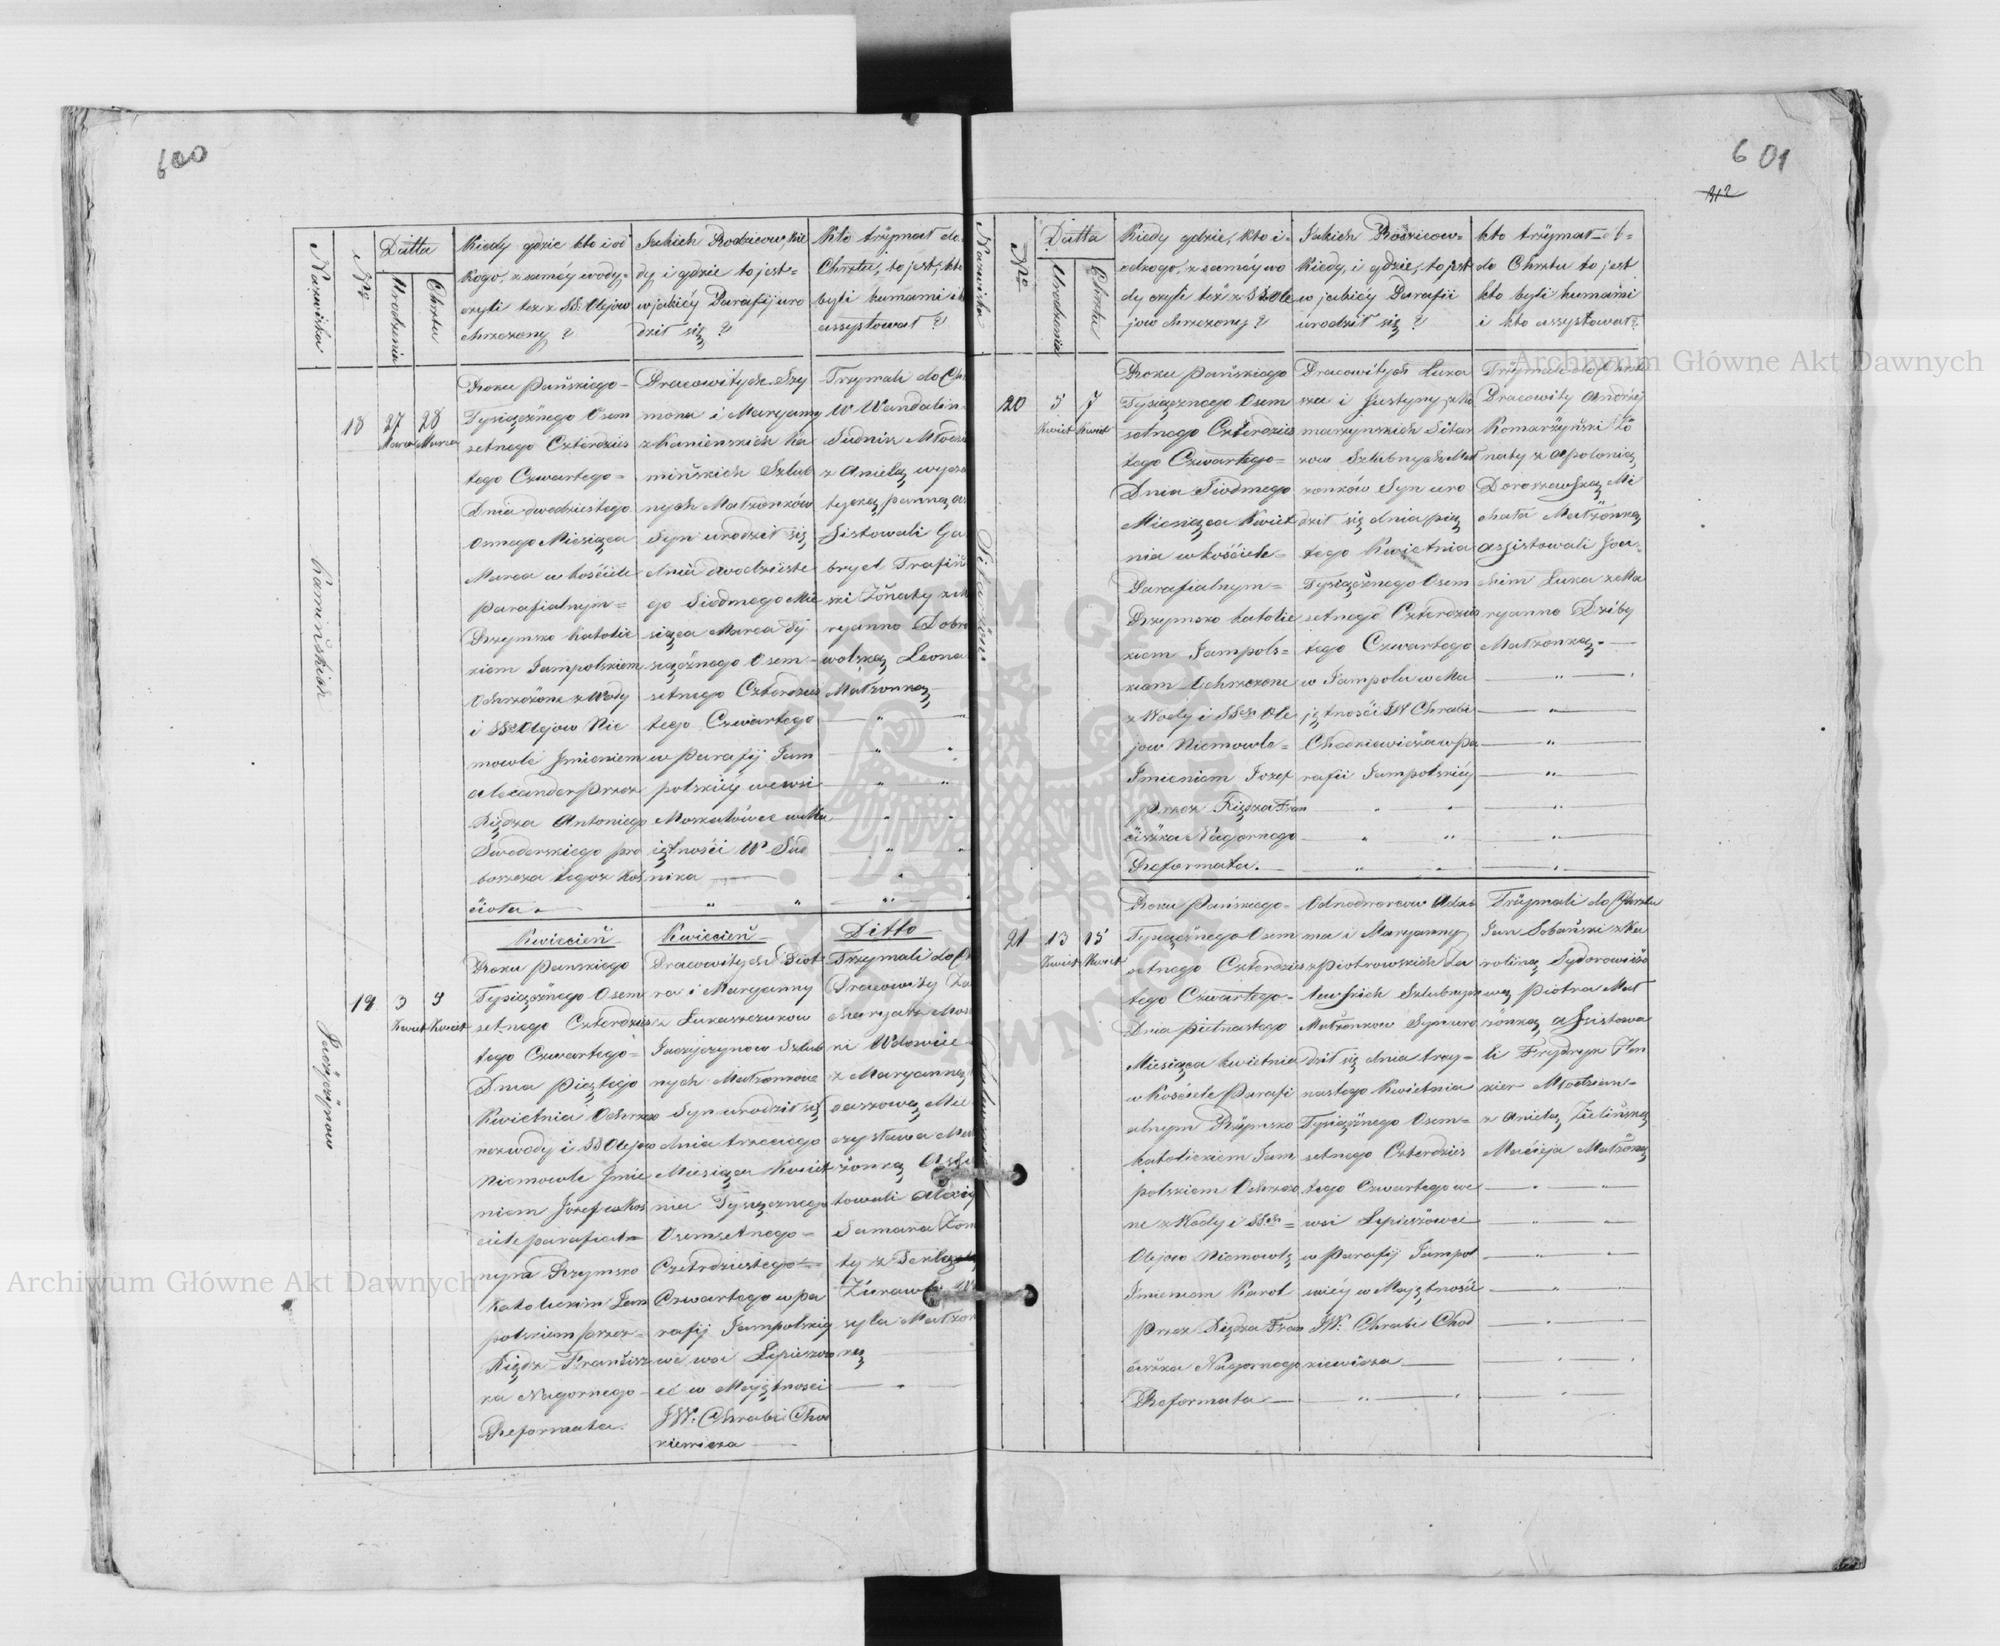 600
Nazwiska
Nro
Datta
Urodzenia
Chrztu
Kiedy gdzie kto i od
kogo, z saméy wody,
czyli też z SS. Olejow
chrzczony ?
Jakich Rodzicow kie
dy i gdzie to jest=
w jakiéy Parafij uro
dził się ?
Kto trzymał do
Chrztu, to jest, kto
byli kumami i k
assystował ?
Kamińskich
18
27
Marca
28
Marca
Roku Pańskiego -
Tysiącznego Osem
setnego Czterdzies
tego Czwartego =
Dnia dwudziestego
Osmego Miesiąca
Marca w kościele
parafialnym =
Rzymsko Katolic
kiem Jampolskiem
Ochrzczone z Wody
i SS. Olejow Nie
mowle Jmieniem
Alexander przez
Xiędza Antoniego
Swederskiego pro
boszcza tegoż Koś
cioła.
Pracowitych Szy
mona i Maryanny
z Kamienskich Ka
mińskich Szlub
nych Małżonków
Syn urodził się
dnia dwudzieste
go Siodmego Mie
siąca Marca Ty
siącznego Osem -
setnego Czterdzies
tego Czwartego
w Parafij Jam
polskiéy we wsi
Moskalówce w Ma
iętności Wo Sud
nika
Trzymali do Ch
W Wandalin
Sudnik Młodzia
z Anielą wyso
tycką panną as
sistowali Ga
bryel Trafiń
ski Żonaty z M
ryanno Dobro
wolską Leona
Małżonką
Kwiecień
Kwiecień
Ditto
19
3
Kwiet
5
Kwiet
Roku Pańskiego
Tysiącznego Osem
setnego Czterdzies
tego Czwartego =
Dnia Piętego
Kwietnia Ochrzczo
ne z wody i SS Olejow
Niemowle Jmie
niem Józef w Koś
ciele parafial=
nym Rzymsko
Katolickim Jam
polskiem przez
Xiędz Francisz
ka Nagornego -
Reformata.
Pracowitych Piot
ra i Maryanny
z Łukaszczukow
Szlub
nych Małżonkow
Syn urodził się
dnia trzeciego
Miesiąca Kwiet
nia Tysiącznego
Osemsetnego =
Czterdziestego =
Czwartego w pa
rafij Jampolskiy
we wsi Lepieszow
cé w Majętnosci
JW. Chrabi Chod
kiewicza
Trzymali do C
Pracowity Za
charyasz Mos
ki Wdowiec
z Maryanną
Mie
czysława Mał
żonką Assys
towali Alexiy
Samara Żona
ty z Teklą
Żuraw
syla Małżon
ką
601
312
Nazwiska
Nro
Datta
Urodzenia
Chrztu
Kiedy gdzie, kto i -
od kogo, z saméy wo
dy czyli też z SS Ole
jow chrzczony ?
Jakich Rodzicow=
Kiedy, i gdzie, to jest
w jakiéy Parafii
urodził się ?
kto trzymał
do Chrztu to jest
kto byli kumami
i kto assystował ?
20
5
Kwiet
7
Kwiet
Roku Pańskiego
Tysiącznego Osem
setnego Czterdzies
tego Czwartego =
Dnia Siodmego
Miesiąca Kwiet
nia w kościele =
Parafialnym =
Rzymsko Katolic
kiem Jampols=
kiem Ochrzczone
z Wody i SSch Ole
jow Niemowle =
Jmieniem Jozef
przez Xiędza Fran
ciszka Nagornego
Reformata.
Pracowitych Luka
sza i Justyny z Ko
marzynskich Sitar
zow Szlubnych Mał
żonków Syn uro
dził się dnia pią
tego Kwietnia
Tysiącznego Osem
setnego Czterdzies
tego Czwartego
w Jampolu w Ma
jętności JW Chrabi
Chodkiewicza w pa
rafii Jampolskiéy
Trzymali do Chrztu
Pracowity Andrzéj
Komarzyński Żo
naty z Apolonią
Doroszewską Mi
chała Małżonką
assistowali Joa-
chim Luka z Ma
ryanno Dziby
Małżonką.
21
13
Kwiet
15
Kwiet
Roku Pańskiego -
Tysiącznego Osem
setnego Czterdzies
tego Czwartego -
Dnia pietnastego
Miesiąca Kwietnia
w Kościele Parafi
alnym Rzymsko
Katolickiem Jam
polskiem Ochrzczo
ne z Wody i SSch =
Olejow Niemowle
Jmieniem Karol
przez Xiędza Fran
ciszka Nagornego
Reformata
Odnodworcow Ada
ma i Maryanny
z Piotrowskich Za
lewskich Szlubnych
Małżonkow Syn uro
dził się dnia trzy-
nastego Kwietnia
Tysiącznego Osem=
setnego Czterdzies
tego Czwartego we
wsi Lepieszówce
w Parafij Jampol
skiéy w Majętności
JW. Chrabi Chod
kiewicza
Trzymali do Chrztu
Jan Sobański z Ka
roliną Sydorowiczo
wą Piotra Mał
żonką Assistowa
li Frydryk
Młodzian-
z Anielą Zielińską
Macieja Małżonką
Archiwum Główne Akt Dawnych
Archiwum Główne Akt Dawnych